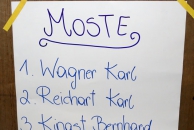 MOSTE
1. Wagner Karl
2. Reichart Karl
3 Kingst Bernhard